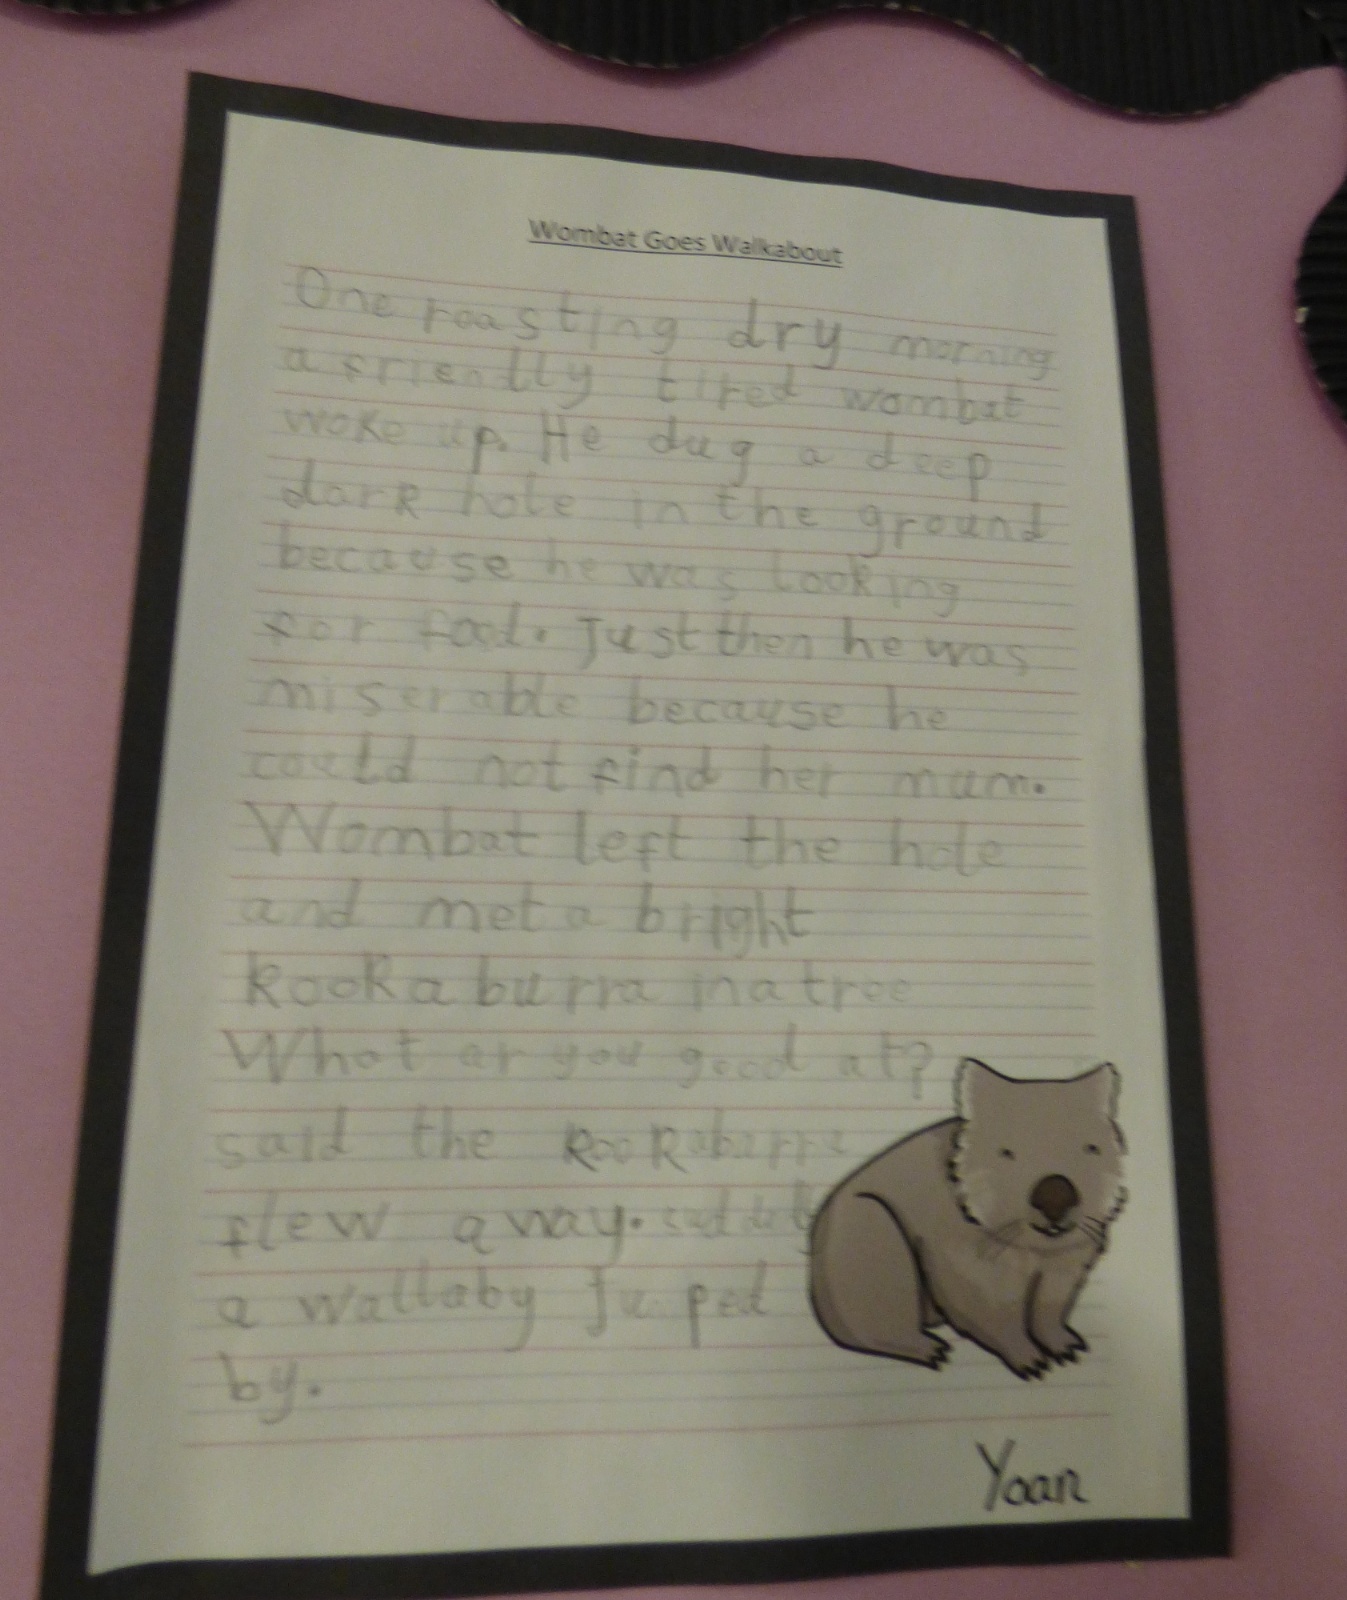 Wombat Goes Walkabout
One roasting dry morning
a friendlly tired wombat
woke up. He dug a deep
dark hole in the ground
because he was looking
for food. Just then he was
miserable because he
could not find her mum.
Wombat left the hole
and met a bright
kookaburra in a tree
What ar you good at?
said the kookaburra
flew away.
a wallaby Ju ped
by.
Yoan